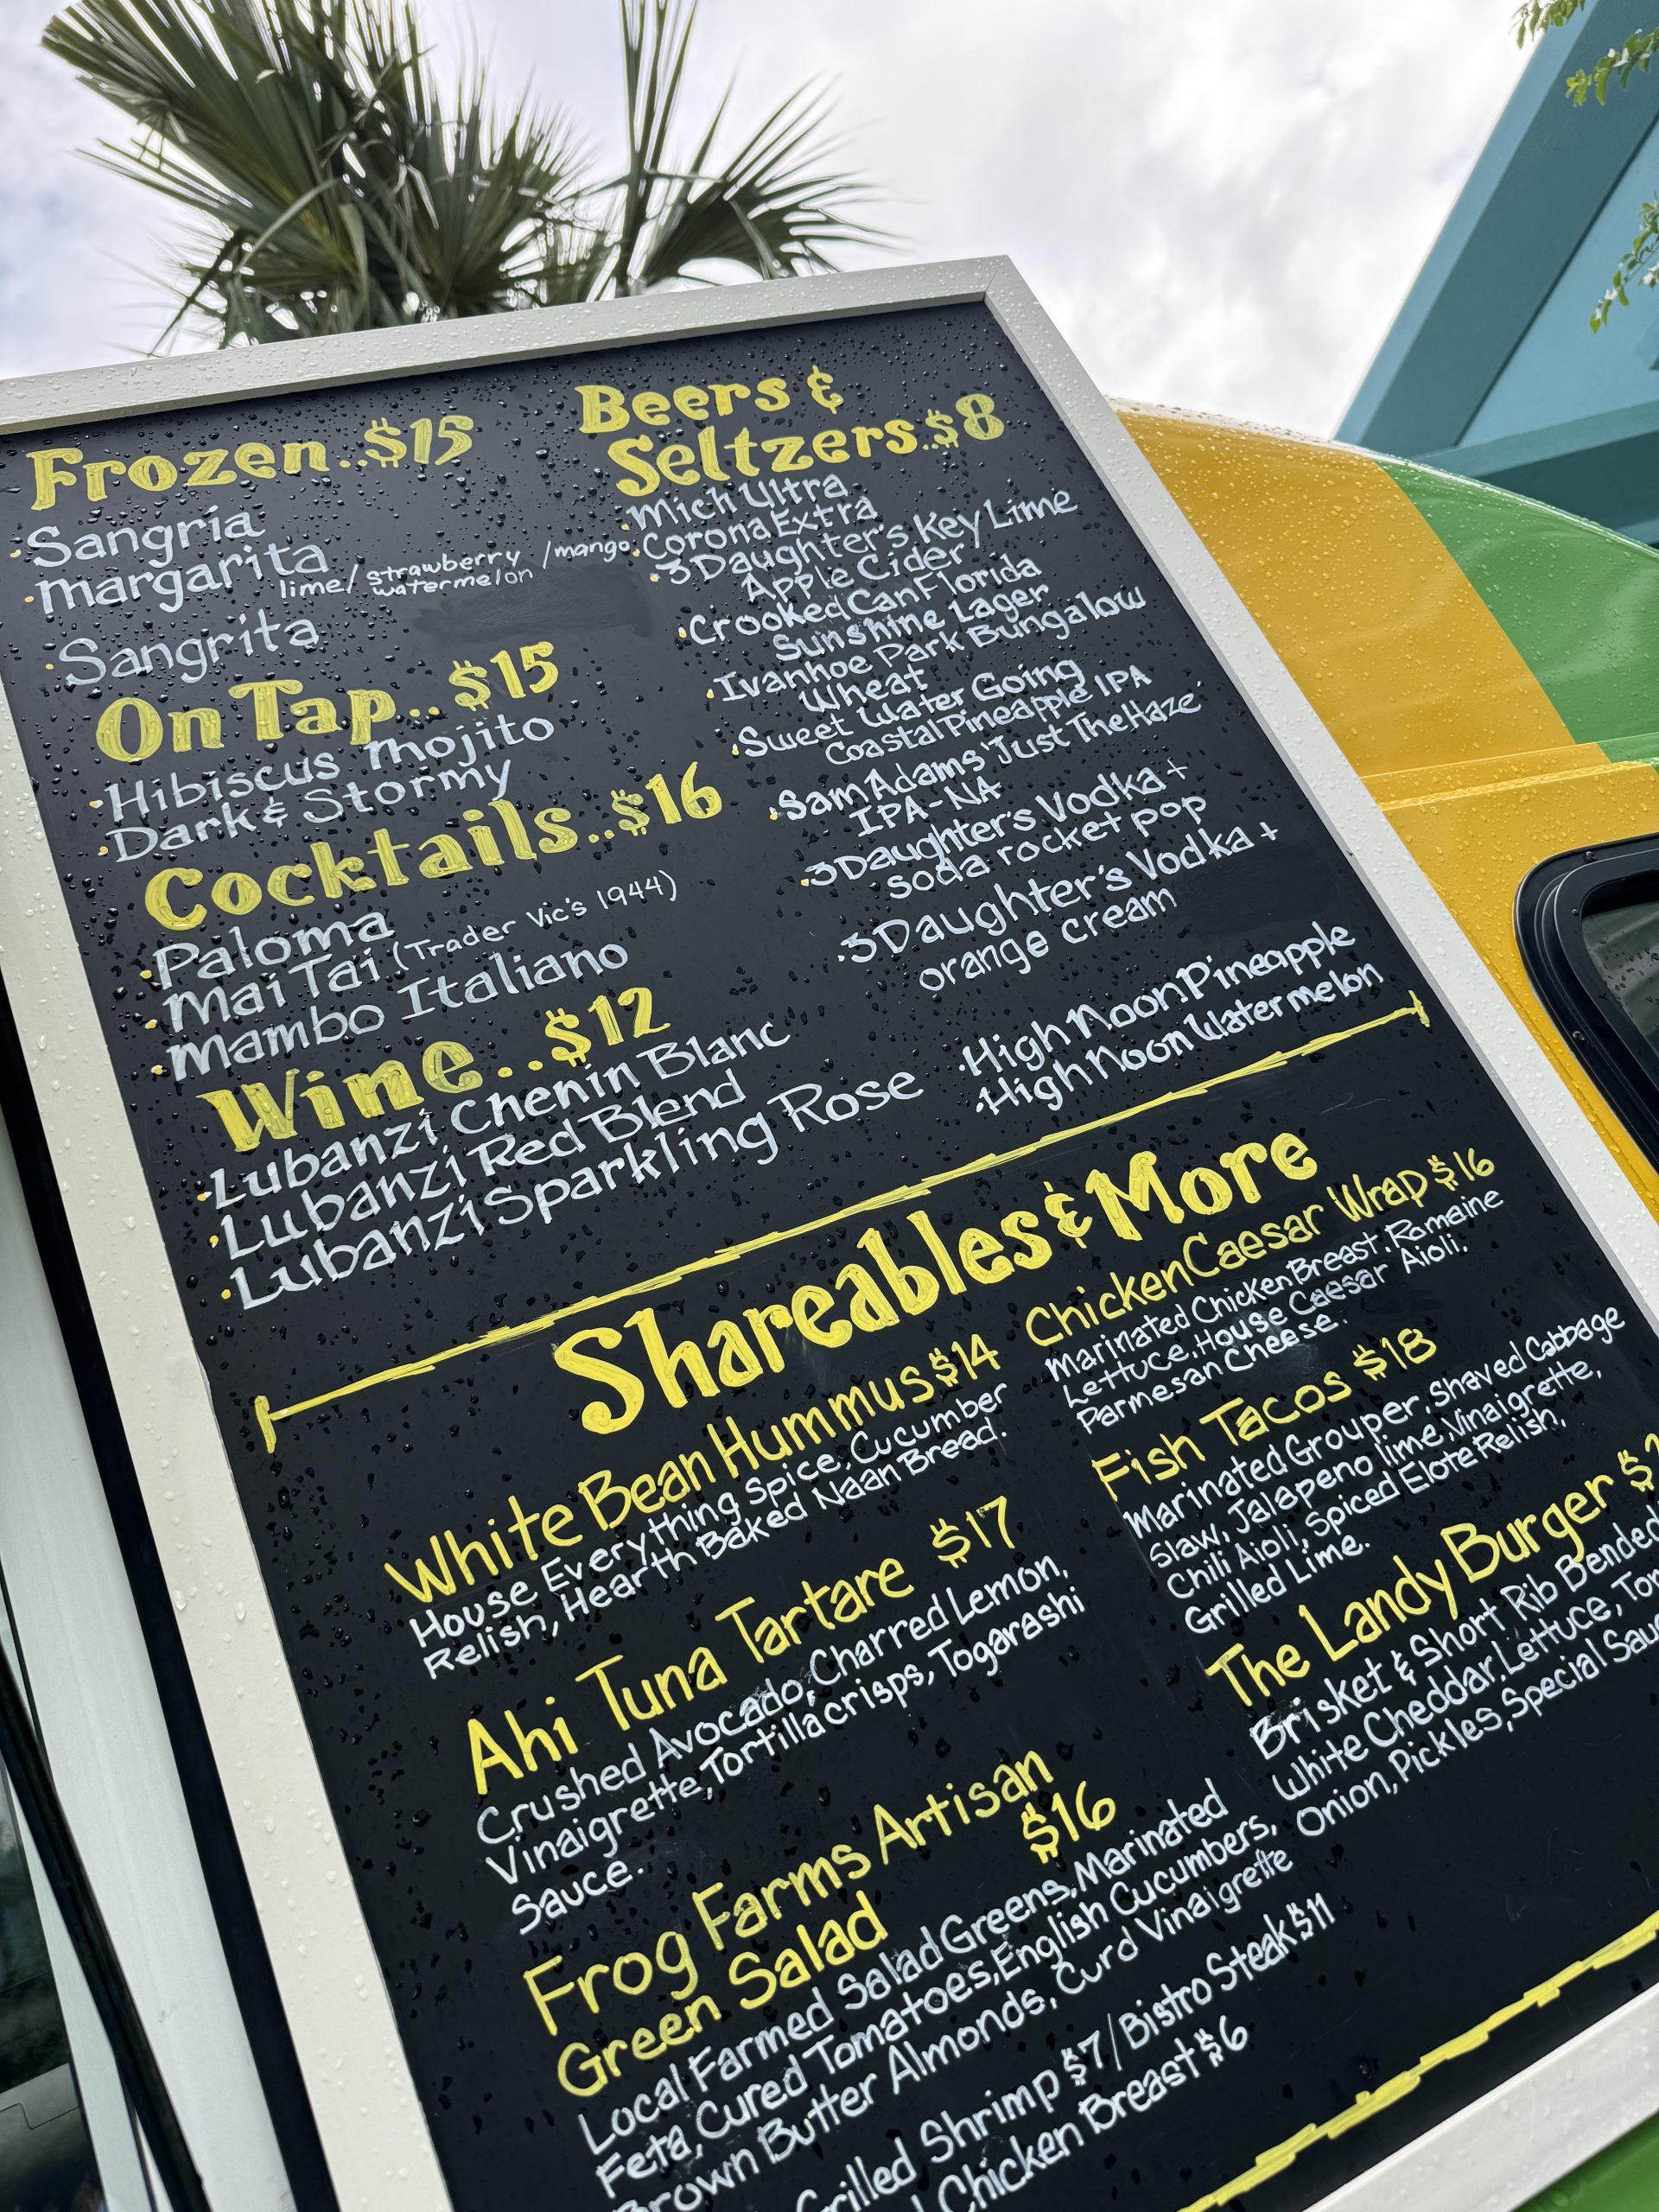 Frozen..$15
• Sangria
• margarita
lime/ strawberry /mango
watermelon
• Sangrita
On Tap..$15
• Hibiscus Mojito
• Dark & Stormy
Cocktails..$16
• Paloma
• Mai Tai (Trader Vic's 1944)
• Mambo Italiano
Wine..$12
• Lubanzi Chenin Blanc
• Lubanzi Red Blend
• Lubanzi Sparkling Rose
Beers &
Seltzers..$8
• Mich Ultra
• Corona Extra
• 3 Daughter's Key Lime
Apple Cider
• Crooked Can Florida
Sunshine Lager
• Ivanhoe Park Bungalow
Wheat
• Sweet Water Going
Coastal Pineapple IPA
• Sam Adams 'Just The Haze'
IPA-NA
• 3 Daughter's Vodka +
soda rocket pop
• 3 Daughter's Vodka +
orange cream
• High Noon Pineapple
• High Noon Watermelon
Shareables & More
White Bean Hummus $14
House Everything Spice, Cucumber
Relish, Hearth Baked Naan Bread.
Ahi Tuna Tartare $17
Crushed Avocado, Charred Lemon,
Vinaigrette, Tortilla crisps, Togarashi
Sauce.
Frog Farms Artisan
Green Salad $16
Local Farmed Salad Greens, Marinated
Feta, Cured Tomatoes, English Cucumbers,
Brown Butter Almonds, Curd Vinaigrette
Grilled Shrimp $7/Bistro Steak $11
Chicken Breast $6
Chicken Caesar Wrap $16
Marinated Chicken Breast, Romaine
Lettuce, House Caesar Aioli,
Parmesan Cheese.
Fish Tacos $18
Marinated Grouper, Shaved Cabbage
Slaw, Jalapeno lime, Vinaigrette,
Chili Aioli, Spiced Elote Relish,
Grilled Lime.
The Landy Burger $
Brisket & Short Rib Bended
White Cheddar, Lettuce,
Onion, Pickles, Special